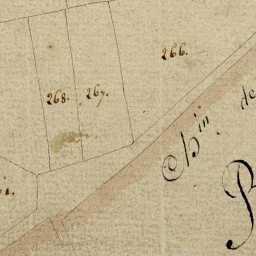 266.
268. 267.
Ch.in de
P